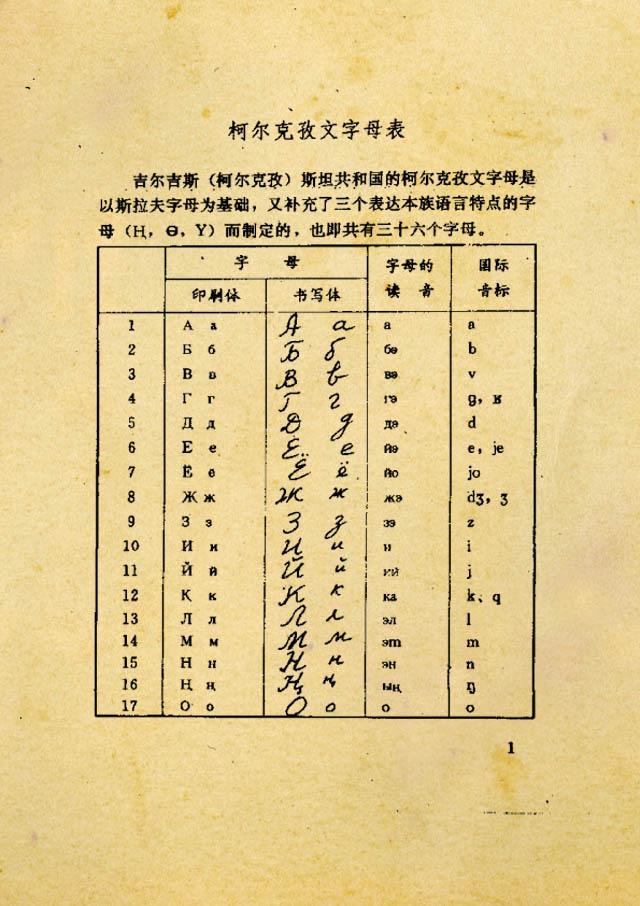 柯尔克孜文字母表
吉尔吉斯（柯尔克孜）斯坦共和国的柯尔克孜文字母是
以斯拉夫字母为基础，又补充了三个表达本族语言特点的字
母（Ң，Ө，Ү）而制定的，也即共有三十六个字母。
字 母 字母的 国际
印刷体 书写体 读 音 音标
1 А а А а а a
2 Б б Б б бə b
3 В в В в вə v
4 Г г Г г гə g，ʁ
5 Д д Д д дə d
6 Е е Е е йə e，je
7 Ё ё Ё ё йо jo
8 Ж ж Ж ж жə dʒ，ʒ
9 З з З з зэ z
10 И и И и и i
11 Й й Й й ий j
12 К к К к ка k、q
13 Л л Л л эл l
14 М м М м эm m
15 Н н Н н эн n
16 Ң ң Ң ң ың ŋ
17 О о О о о o
1